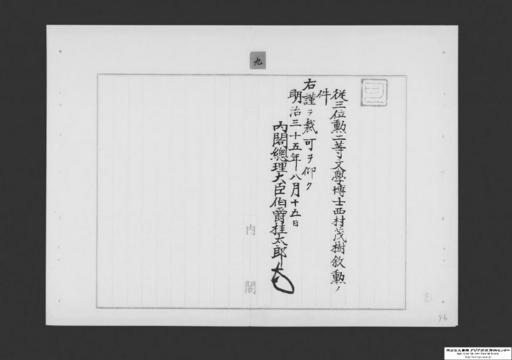 九
従三位勲二等文學博士西村茂樹敘勲ノ
件
右謹テ裁可ヲ仰ク
明治三十五年八月十五日
内閣總理大臣伯爵桂太郎
内閣